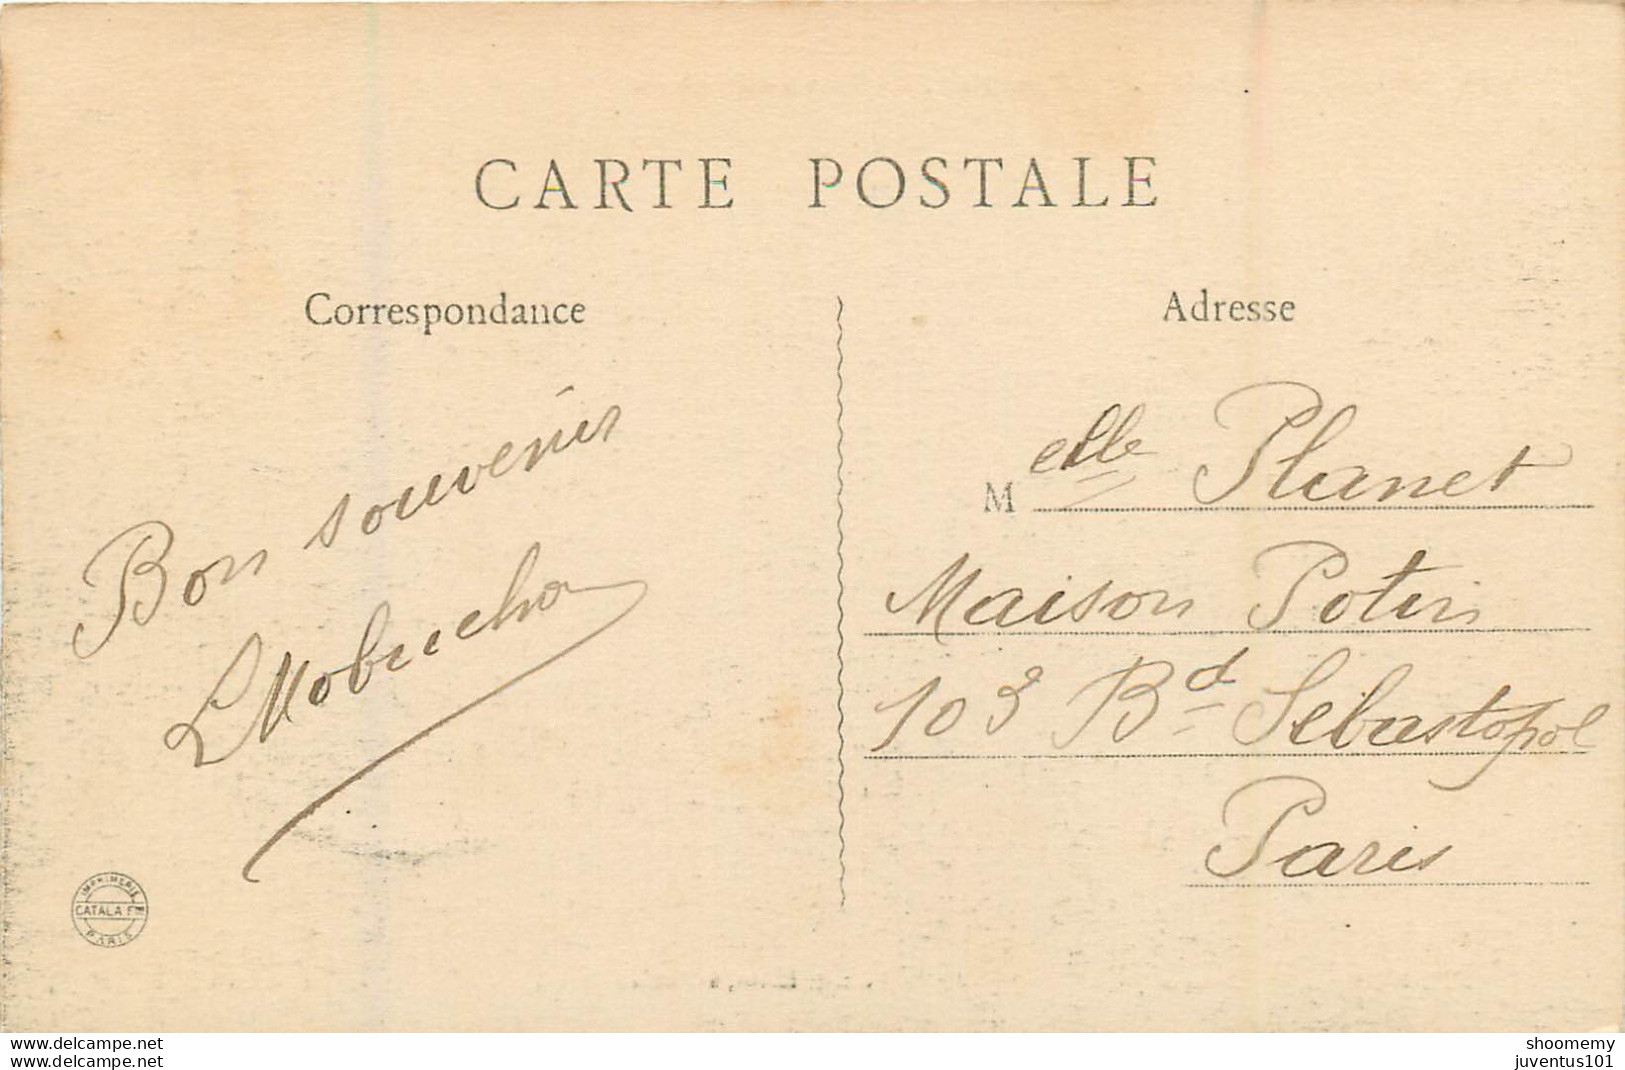 CARTE POSTALE
Correspondance
Adresse
Bon souvenir
Melle Planet
Maison Potin
103 Bd Sebastopol
Paris
IMPRIMERIE
CATALA Fres
PARIS
www.delcampe.net
www.delcampe.net
shoomemy
juventus101